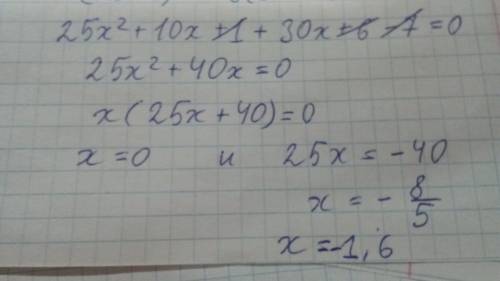 25x² + 10x + 1 + 30x + 6 - 7 = 0
25x² + 40x = 0
x(25x + 40) = 0
x = 0 и 25x = -40
x = - 8/5
x = -1,6